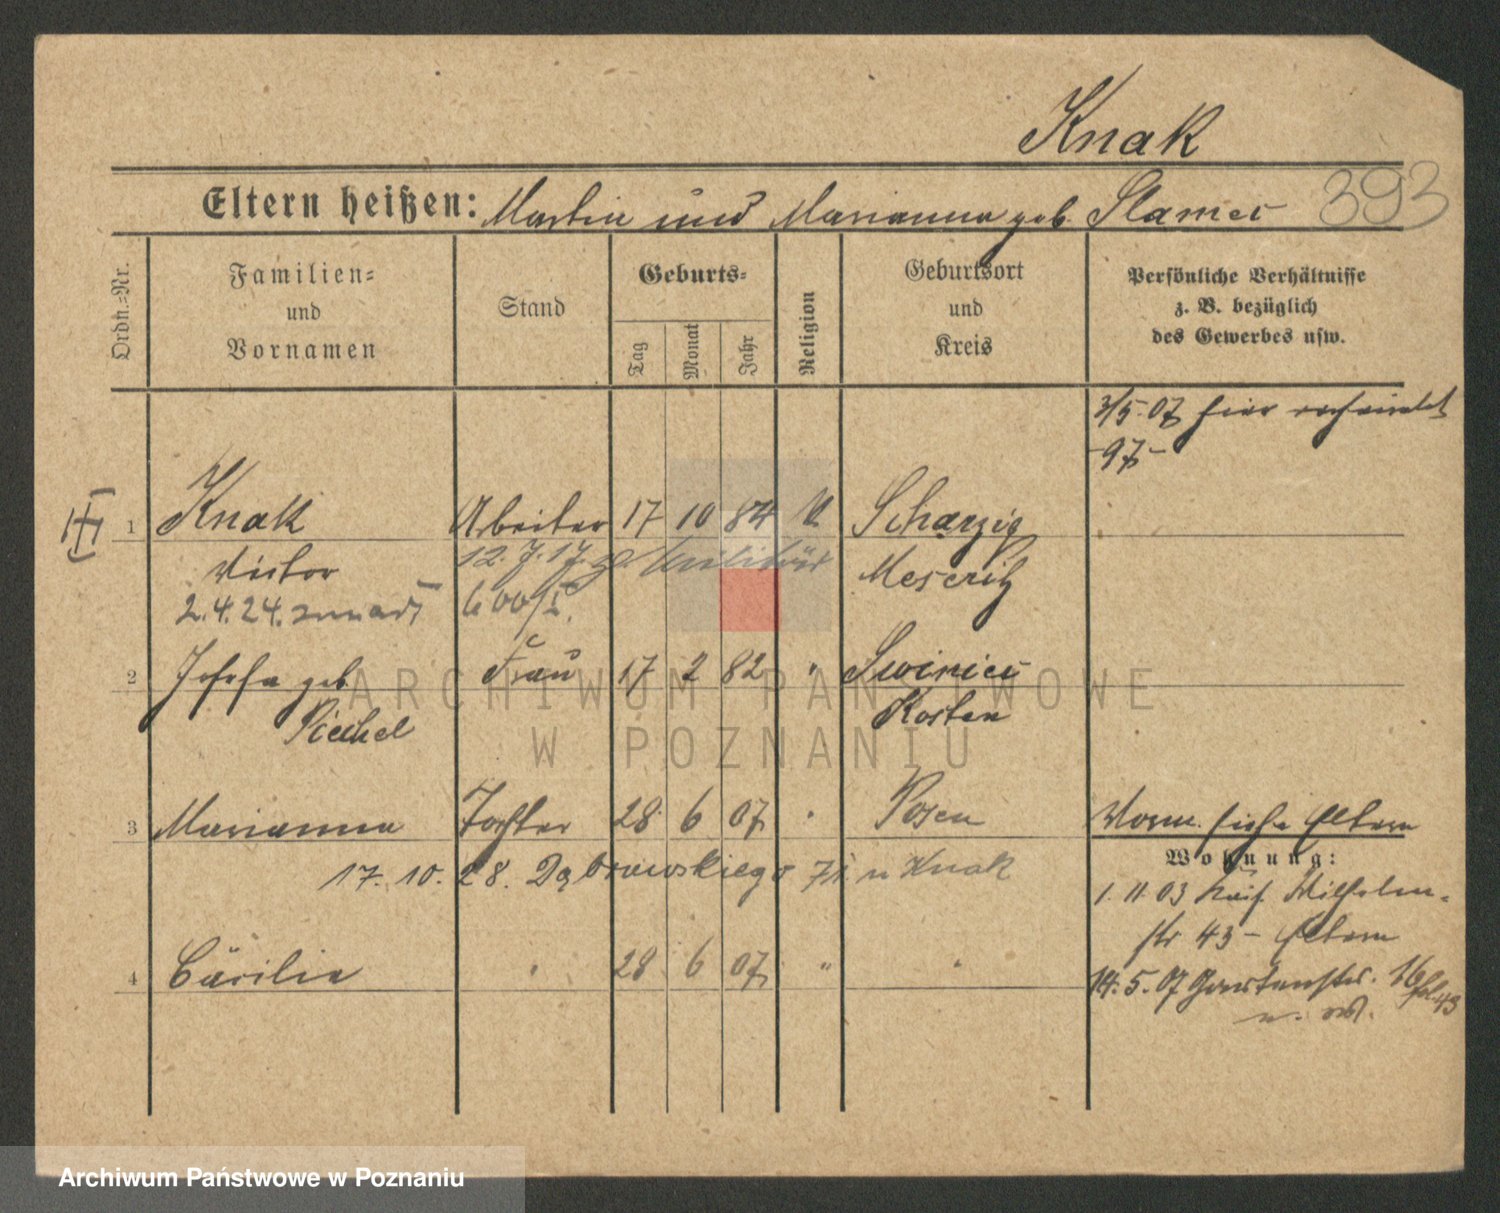 Knak
Eltern heißen: Martin und Marianna geb. Slamer
393
Ordn.=Nr.
Familien=
und
Vornamen
Stand
Geburts=
Tag
Monat
Jahr
Religion
Geburtsort
und
Kreis
Persönliche Verhältnisse
z. B. bezüglich
des Gewerbes usw.
3/5.07 hier
-97-
1 Knak Arbeiter 17 10 84 Scharzig
Victor 12.7.17. Militär Meseritz
2.4.24.
2 Josefa geb Frau 17 2 82 "
Kosten
3 Marianna Tochter 28 6 07 Posen Vorm. siehe Eltern
Wohnung:
17. 10. 28. Dąbrowskiego 71. u Knak
1. 11. 03 Kais. Wilhelm-
str 43 - Eltern
4 Cäcilie 28 6 07 "
14. 5. 07 Gartenstr. 16
ARCHIWUM PAŃSTWOWE
W POZNANIU
Archiwum Państwowe w Poznaniu